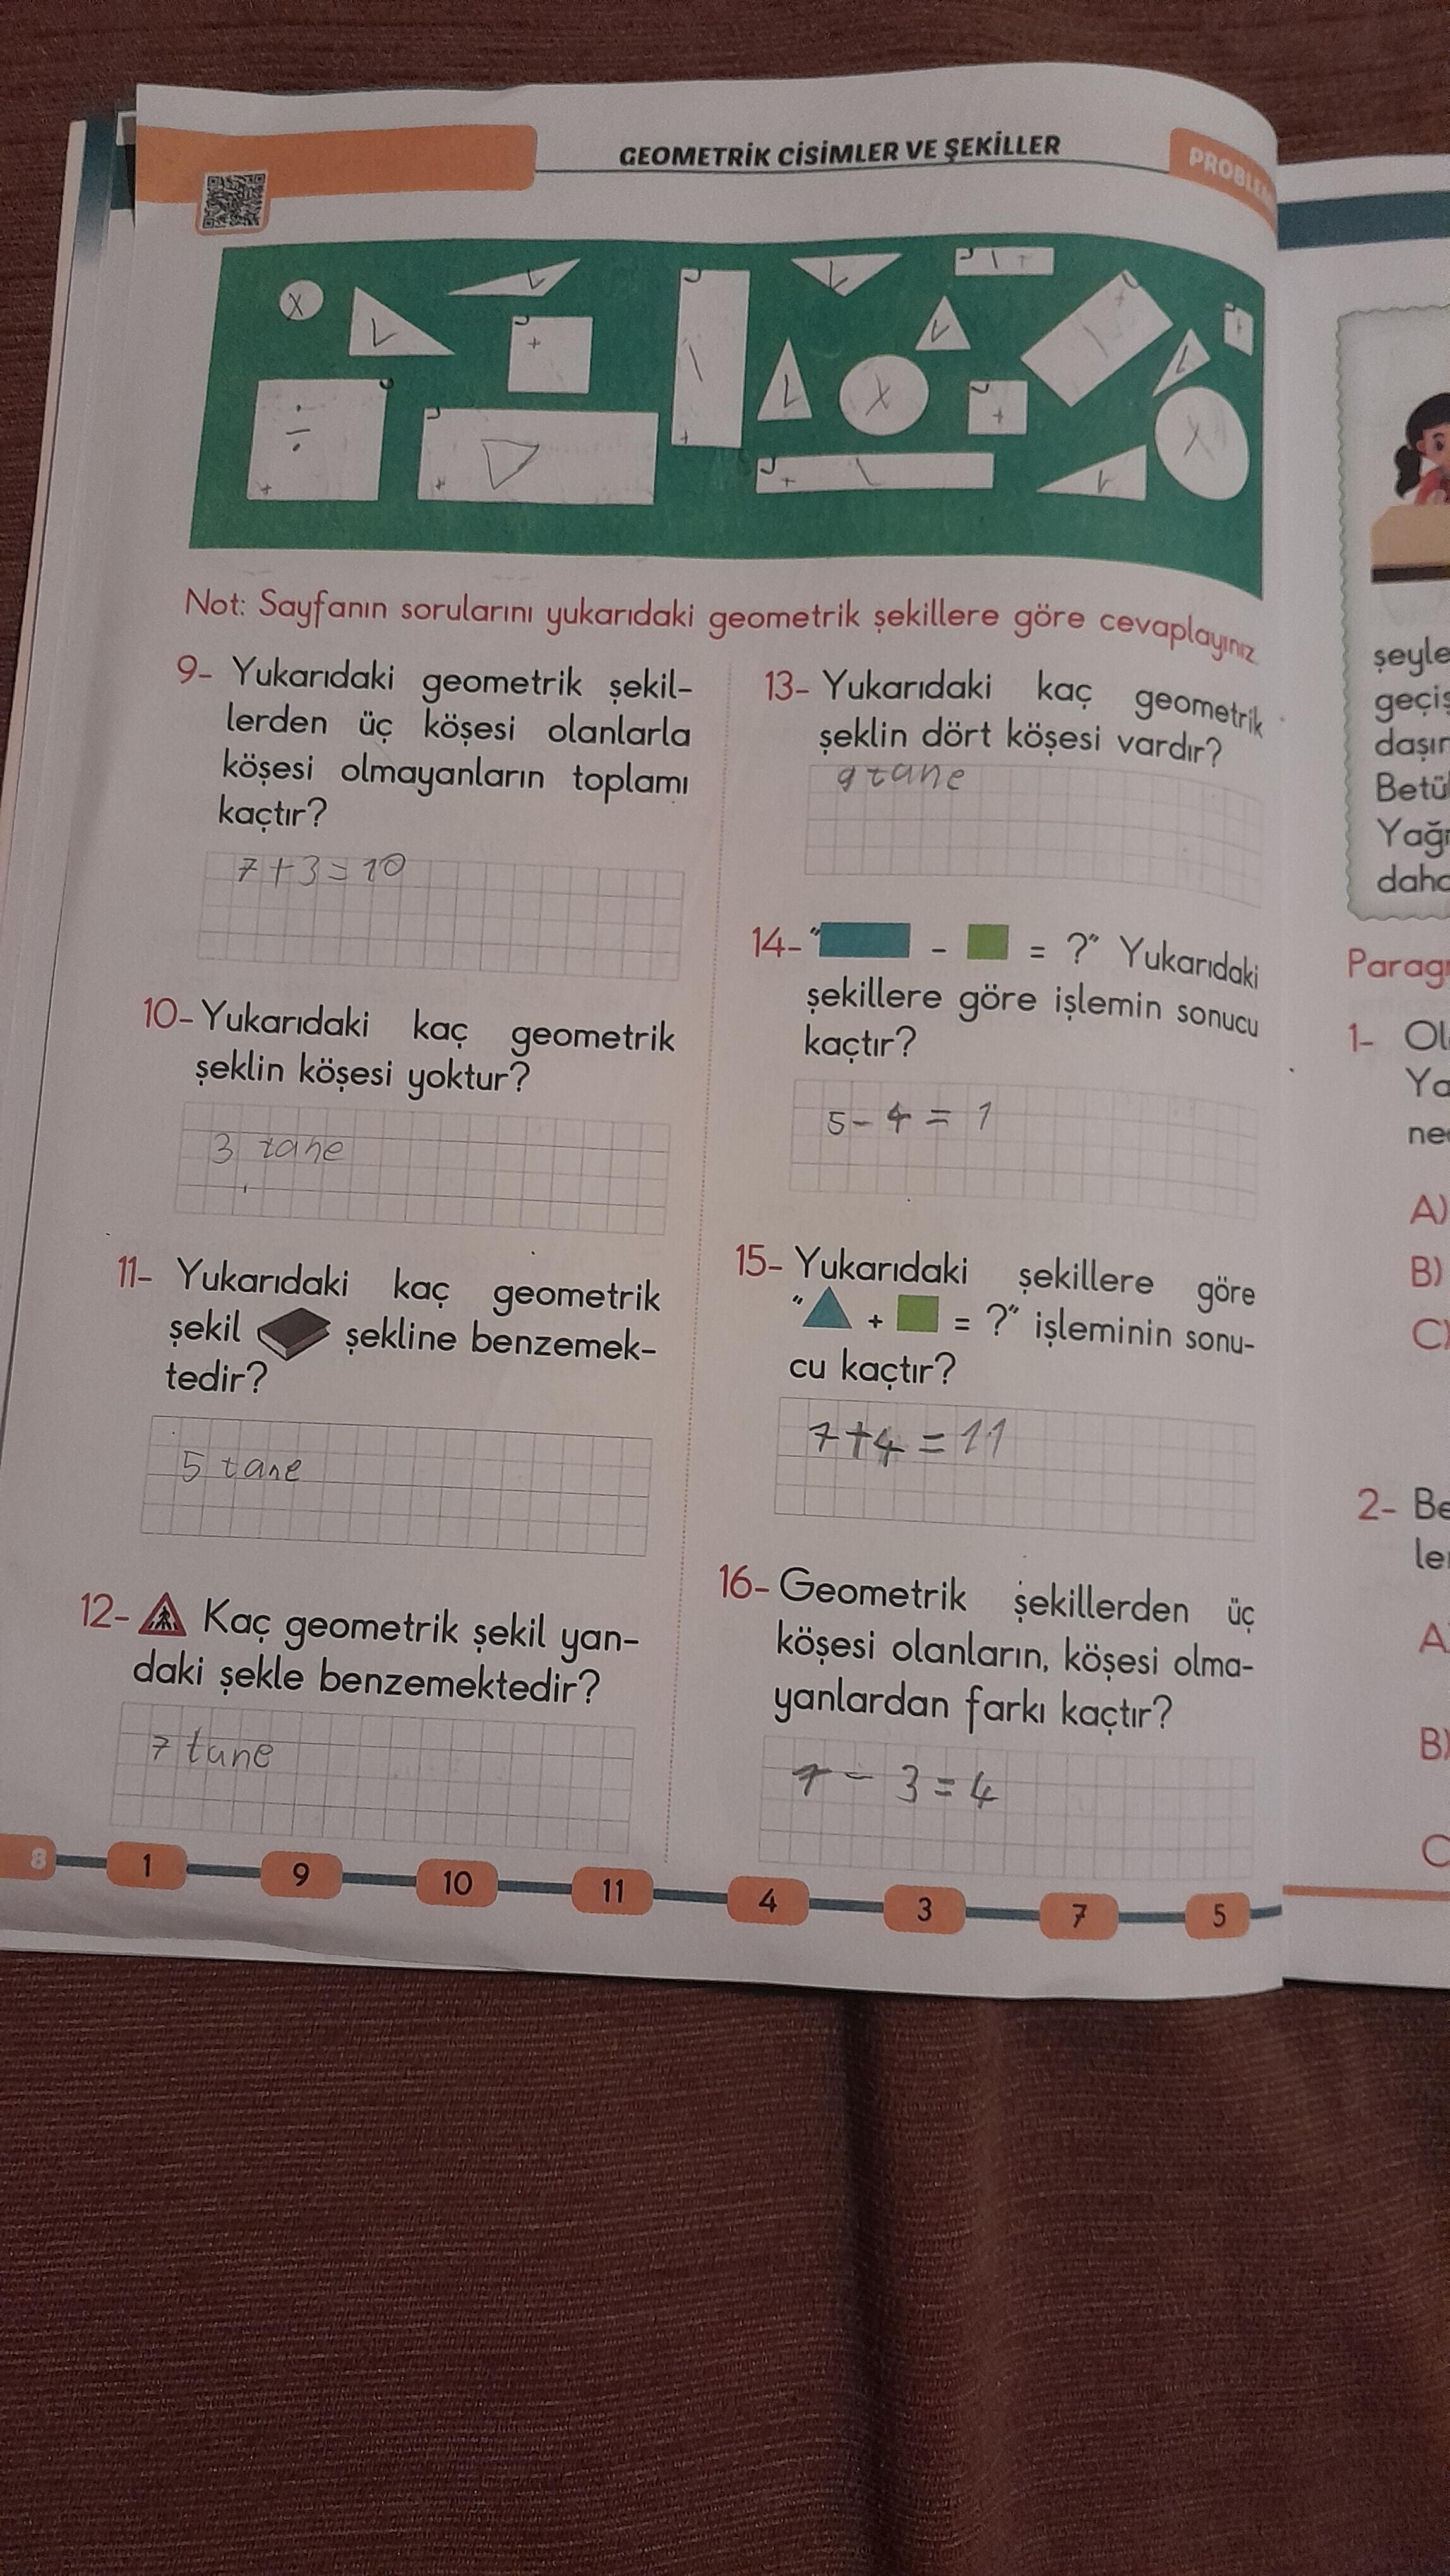 GEOMETRİK CİSİMLER VE ŞEKİLLER
PROBLEM
Not: Sayfanın sorularını yukarıdaki geometrik şekillere göre cevaplayınız.
9- Yukarıdaki geometrik şekil-
lerden üç köşesi olanlarla
köşesi olmayanların toplamı
kaçtır?
7+3=10
10- Yukarıdaki kaç geometrik
şeklin köşesi yoktur?
3 tane
11- Yukarıdaki kaç geometrik
şekil şekline benzemek-
tedir?
5 tane
12- Kaç geometrik şekil yan-
daki şekle benzemektedir?
7 tane
13- Yukarıdaki kaç geometrik
şeklin dört köşesi vardır?
9 tane
14- " - = ?" Yukarıdaki
şekillere göre işlemin sonucu
kaçtır?
5-4=1
15- Yukarıdaki şekillere göre
" + = ?" işleminin sonu-
cu kaçtır?
7+4=11
16- Geometrik şekillerden üç
köşesi olanların, köşesi olma-
yanlardan farkı kaçtır?
7-3=4
8 1 9 10 11 4 3 7 5
şeyle
geçiş
daşır
Betül
Yağı
daha
Parag
1- Ol
Ya
ne
A)
B)
C)
2- Be
le
A)
B)
C